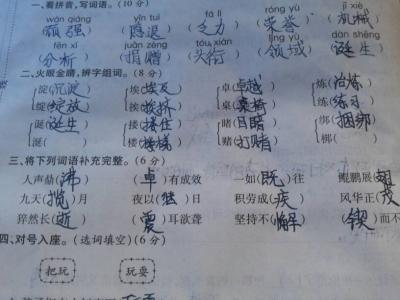 一、看拼音,写词语。(10分)
wán qiáng yǐn tuì fá lì róng yù jī xiè
(顽强) (隐退) (乏力) (荣誉) (机械)
fēn xī juān zèng tóu xián lǐng yù dàn shēng
(分析) (捐赠) (头衔) (领域) (诞生)
二、火眼金睛,辨字组词。(8分)
淀(沉淀) 埃(埃及) 卓(卓越) 炼(冶炼)
绽(绽放) 挨(挨挤) 桌(桌椅) 练(练习)
诞(诞生) 搂(搂住) 睹(目睹) 绑(捆绑)
诞( ) 楼(楼梯) 赌(打赌) 梆(
三、将下列词语补充完整。(6分)
人声鼎(沸) (卓)有成效 一如(既)往 鲲鹏展(翅
九天(揽)月 夜以(继)日 积劳成(疾) 风华正(茂
猝然长(逝) (震)耳欲聋 坚持不(懈) (锲)而不
四、对号入座。(选词填空)(6分)
把玩 玩耍